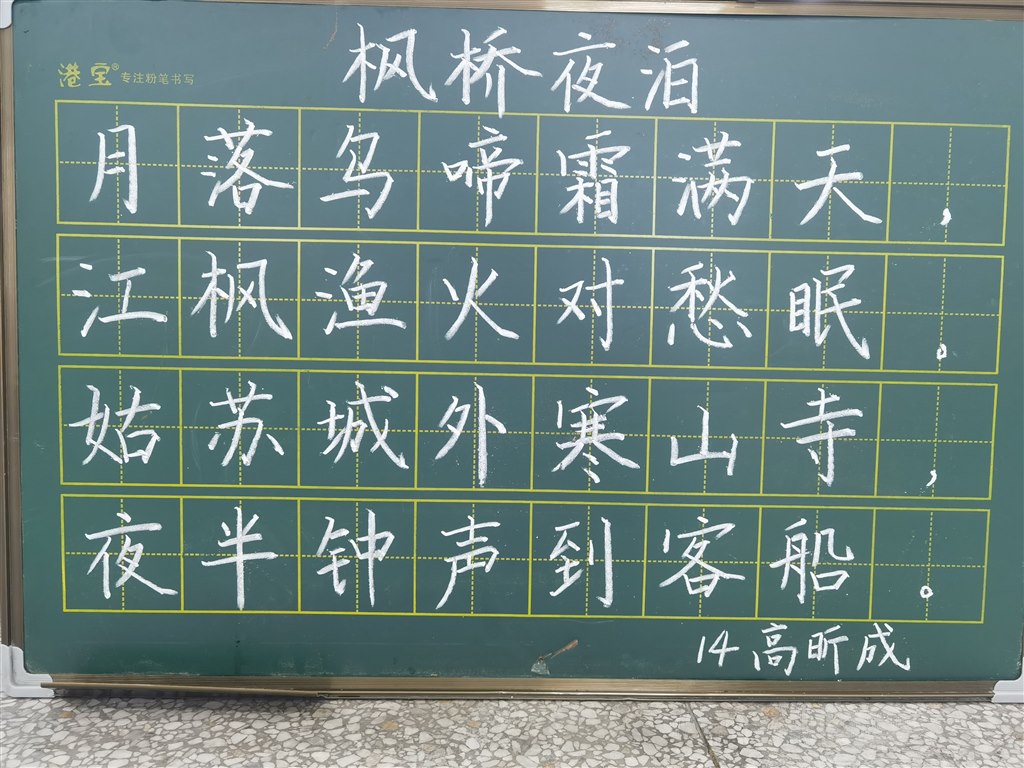 枫桥夜泊
港宝® 专注粉笔书写
月落乌啼霜满天，
江枫渔火对愁眠。
姑苏城外寒山寺，
夜半钟声到客船。
14高昕成